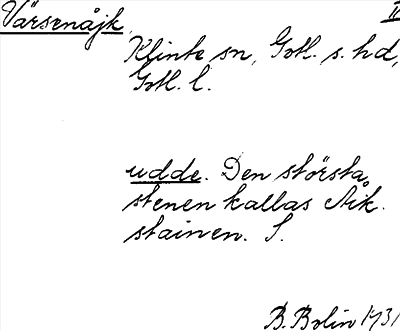 Värsenåjk, II
Klinte sn, Gotl. s. hd,
Gotl. l.
udde. Den största
stenen kallas Åik.
stainen. S.
B. Bolin 1931